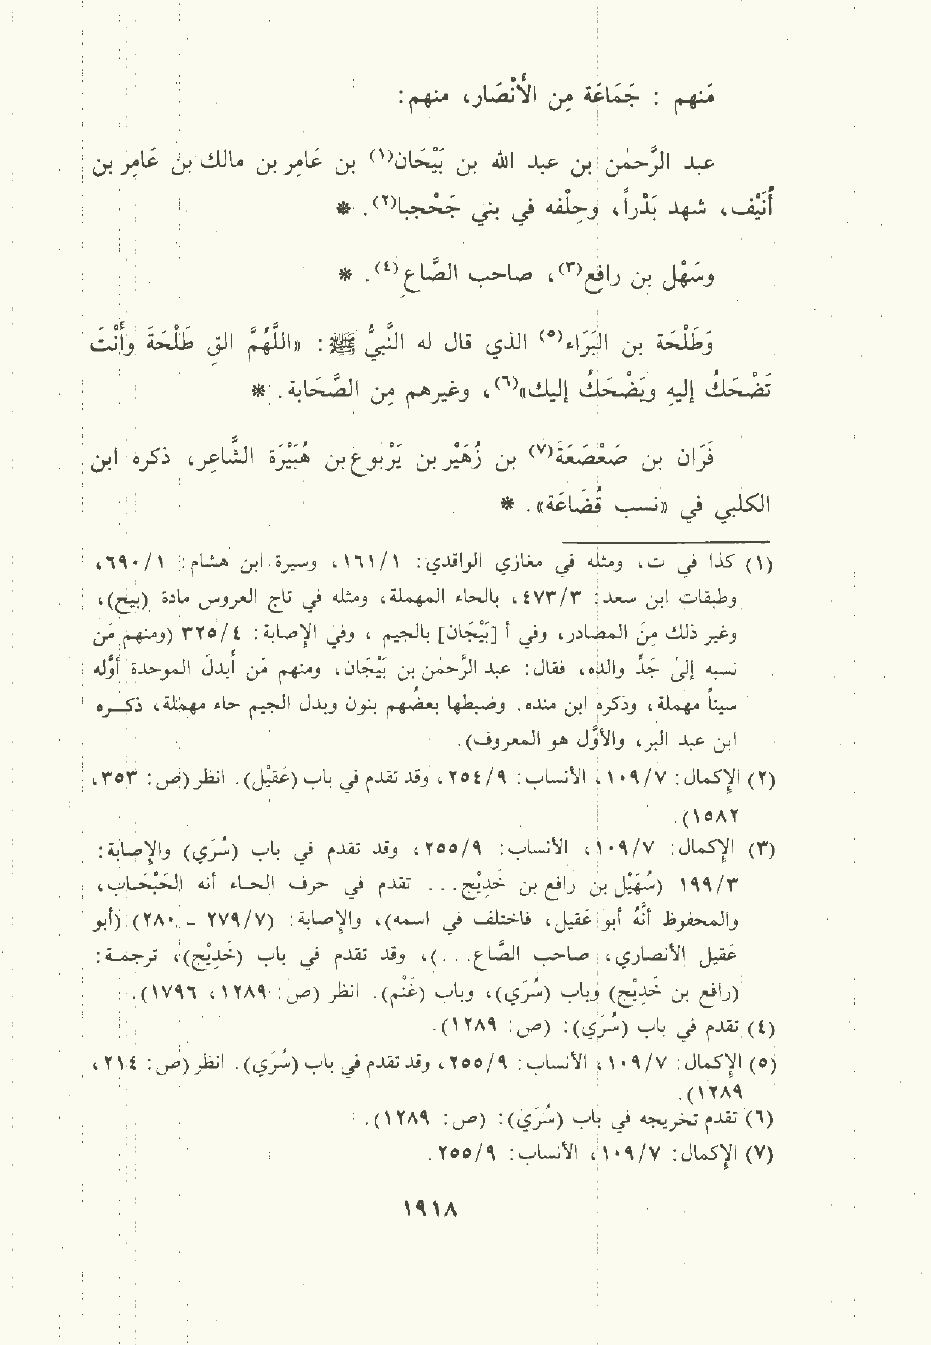 مَنهم : جَمَاعَة مِن الأَنْصَار، منهم:
عبد الرَّحمٰن بن عبد الله بن بَيْجَان(١) بن عَامِر بن مالك بن عَامِر بن
أُنَيْف، شهد بَدْراً، وحِلْفه في بني جَحْجبا(٢). *
وسَهْل بن رافِع(٣)، صاحب الصَّاع(٤). *
وَطَلْحَة بن البَرَاء(٥) الذي قال له النَّبيُّ ﷺ: «اللَّهُمَّ القِ طَلْحَةَ وأَنْتَ
تَضْحَكُ إليهِ ويَضْحَكُ إليك»(٦)، وغيرهم مِن الصَّحَابة. *
فَرَان بن صَعْصَعَة(٧) بن زُهَيْر بن يَرْبوع بن هُبَيْرَة الشَّاعِر، ذكره ابن
الكلبي في «نسب قُضَاعَة». *
(١) كذا في ت، ومثله في مغازي الواقدي: ١٦١/١، وسيرة ابن هشام: ٦٩٠/١،
وطبقات ابن سعد: ٤٧٣/٣، بالحاء المهملة، ومثله في تاج العروس مادة (بيح)،
وغير ذلك مِن المصادر، وفي أ [بَيْجَان] بالجيم ، وفي الإصابة: ٣٢٥/٤ (ومنهم مَن
نسبه إلىٰ جَدِّ والده، فقال: عبد الرَّحمٰن بن بَيْجَان، ومنهم مَن أبدلَ الموحدة أوَّله
سيناً مهملة، وذكره ابن منده. وضبطها بعضُهم بنون وبدل الجيم حاء مهملة، ذكره
ابن عبد البر، والأوَّل هو المعروف).
(٢) الإكمال: ١٠٩/٧، الأنساب: ٢٥٤/٩، وقد تقدم في باب (عَقِيْل). انظر (ص: ٣٥٣،
١٥٨٢).
(٣) الإكمال: ١٠٩/٧، الأنساب: ٢٥٥/٩، وقد تقدم في باب (سُرَي) والإصابة:
١٩٩/٣ (سُهَيْل بن رافع بن خَدِيْج... تقدم في حرف الحاء أنه الحَبْحَاب،
والمحفوظ أنَّهُ أبو عَقيل، فاختلف في اسمه)، والإصابة: (٢٧٩/٧ - ٢٨٠) (أبو
عَقيل الأنصاري، صاحب الصَّاع...)، وقد تقدم في باب (خَدِيْج)، ترجمة:
(رافع بن خَدِيْج) وباب (سُرَي)، وباب (غَنْم). انظر (ص: ١٢٨٩، ١٧٩٦).
(٤) تقدم في باب (سُرَي): (ص: ١٢٨٩).
(٥) الإكمال: ١٠٩/٧، الأنساب: ٢٥٥/٩، وقد تقدم في باب (سُرَي). انظر (ص: ٢١٤،
١٢٨٩).
(٦) تقدم تخريجه في باب (سُرَي): (ص: ١٢٨٩).
(٧) الإكمال: ١٠٩/٧، الأنساب: ٢٥٥/٩.
١٩١٨